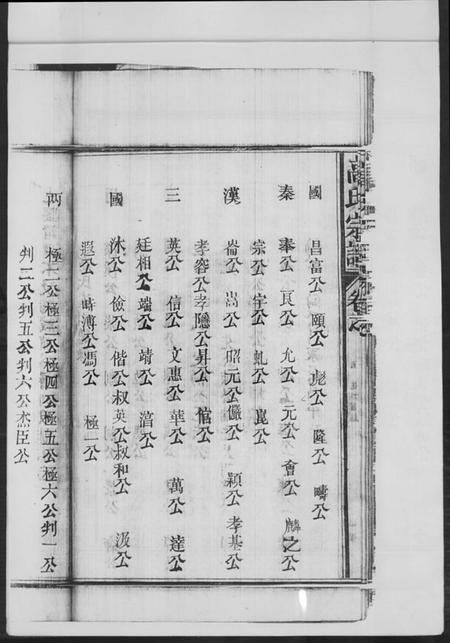 氏宗譜 卷
國 昌富公 頤公 彪公 隆公 疇公
秦 奉公 良公 允公 元公 會公 麟之公
宗公 宇公 虬公 崑公
漢 崙公 嵩公 昭元公 儼公 穎公 孝基公
孝容公 孝隱公 昇公 倌公
三 英公 信公 文惠公 華公 萬公 達公
廷相公 端公 靖公 公
國 沐公 儉公 偕公 叔英公 叔和公 汲公
遐公 時溥公 馮公 極一公
兩 極二公 極三公 極四公 極五公 極六公 判一公
判二公 判五公 判六公 杰臣公